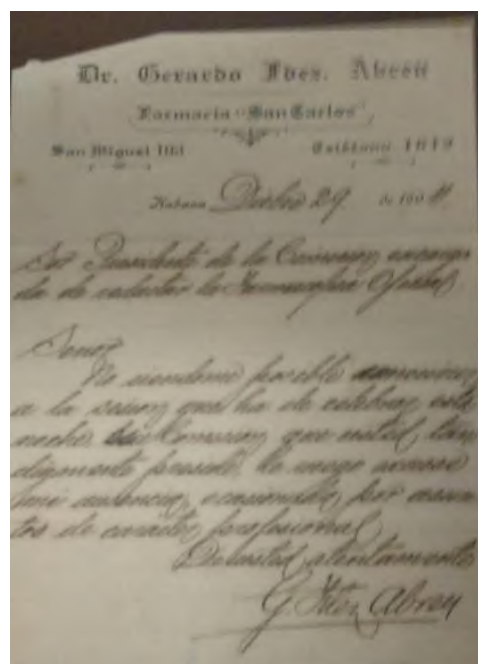 Dr. Gerardo Fdez. Abreu
Farmacia "San Carlos"
San Miguel
Teléfono 1819
Habana Dicbre 29 de 190
Sor Presidente de la Comision encarga
da de redactar la Farmacopea Oficial
Señor
No siendome posible
a la sesion que ha de celebrar esta
noche la Comision que usted tan
dignamente preside, le ruego excuse
mi ausencia, ocasionada por asun
tos de caracter profesional
De usted atentamente
G. Fdez Abreu